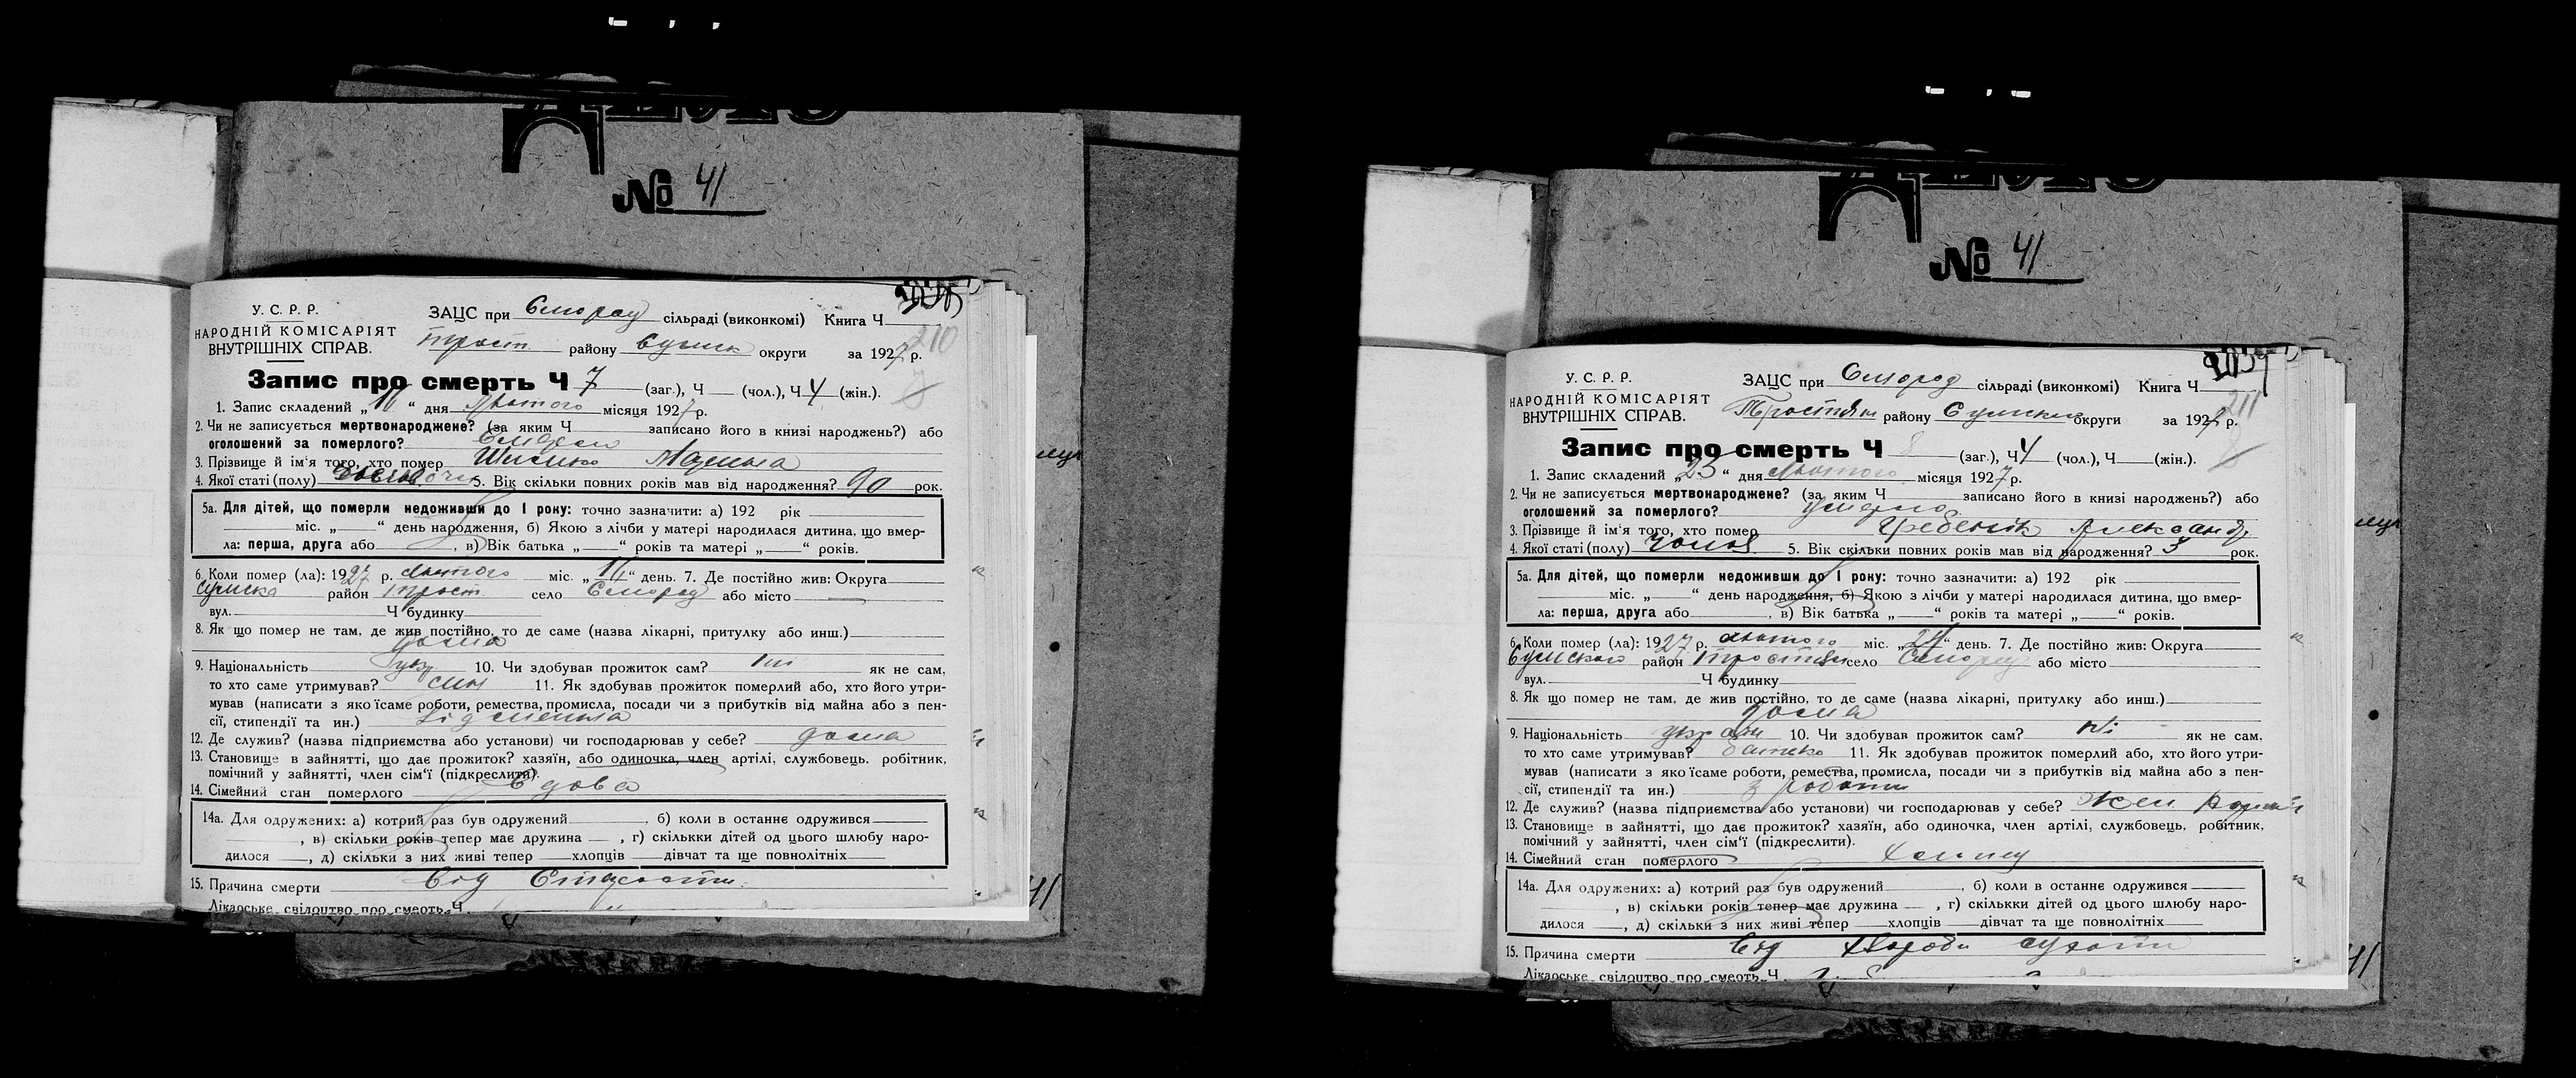 № 41
У. С. Р. Р.
НАРОДНІЙ КОМІСАРІЯТ
ВНУТРІШНІХ СПРАВ.
ЗАЦС при Смород сільраді (виконкомі) Книга Ч
Трост району Сумськ округи за 1927 р.
210
Запис про смерть Ч 7 (заг.), Ч (чол.), Ч 4 (жін.).
1. Запис складений „ “ дня Лютого місяця 1927 р.
2. Чи не записується мертвонароджене? (за яким Ч записано його в книзі народжень?) або
оголошений за померлого?
3. Прізвище й ім‘я того, хто помер
4. Якої статі (полу) 5. Вік скільки повних років мав від народження? 90 рок.
5а. Для дітей, що померли недоживши до 1 року: точно зазначити: а) 192 рік
міс. „ “ день народження, б) Якою з лічби у матері народилася дитина, що вмер-
ла: перша, друга або , в) Вік батька „ “ років та матері „ “ років.
6. Коли помер (ла): 1927 р. Лютого міс. „ “ день. 7. Де постійно жив: Округа
Сумська район Трост село Смород або місто
вул. Ч будинку
8. Як що помер не там, де жив постійно, то де саме (назва лікарні, притулку або инш.)
дома
9. Національність укр 10. Чи здобував прожиток сам? ні як не сам,
то хто саме утримував? син 11. Як здобував прожиток померлий або, хто його утри-
мував (написати з яко їсаме роботи, ремества, промисла, посади чи з прибутків від майна або з пен-
сії, стипендії та ин.)
12. Де служив? (назва підприємства або установи) чи господарював у себе? дома
13. Становище в зайнятті, що дає прожиток? хазяїн, або одиночка, член артілі, службовець, робітник,
помічний у зайнятті, член сім‘ї (підкреслити).
14. Сімейний стан померлого Вдова
14а. Для одружених: а) котрий раз був одружений , б) коли в останнє одружився
, в) скільки років тепер має дружина , г) скількки дітей од цього шлюбу наро-
дилося , д) скільки з них живі тепер хлопців дівчат та ще повнолітніх
15. Причина смерти Від Старости
Лікарське свідоцтво про смерть Ч
№ 41
У. С. Р. Р.
НАРОДНІЙ КОМІСАРІЯТ
ВНУТРІШНІХ СПРАВ.
ЗАЦС при Смород сільраді (виконкомі) Книга Ч
Тростян району Сумськ округи за 1927 р.
211
Запис про смерть Ч 8 (заг.), Ч 4 (чол.), Ч (жін.).
1. Запис складений „25“ дня Лютого місяця 1927 р.
2. Чи не записується мертвонароджене? (за яким Ч записано його в книзі народжень?) або
оголошений за померлого?
3. Прізвище й ім‘я того, хто помер Гребеник Александр
4. Якої статі (полу) чолов 5. Вік скільки повних років мав від народження? 3 рок.
5а. Для дітей, що померли недоживши до 1 року: точно зазначити: а) 192 рік
міс. „ “ день народження, б) Якою з лічби у матері народилася дитина, що вмер-
ла: перша, друга або , в) Вік батька „ “ років та матері „ “ років.
6. Коли помер (ла): 1927 р. Лютого міс. „24“ день. 7. Де постійно жив: Округа
Сумского район Тростян село Смород або місто
вул. Ч будинку
8. Як що помер не там, де жив постійно, то де саме (назва лікарні, притулку або инш.)
дома
9. Національність 10. Чи здобував прожиток сам? ні як не сам,
то хто саме утримував? батько 11. Як здобував прожиток померлий або, хто його утри-
мував (написати з яко їсаме роботи, ремества, промисла, посади чи з прибутків від майна або з пен-
сії, стипендії та ин.) з роботи
12. Де служив? (назва підприємства або установи) чи господарював у себе?
13. Становище в зайнятті, що дає прожиток? хазяїн, або одиночка, член артілі, службовець, робітник,
помічний у зайнятті, член сім‘ї (підкреслити).
14. Сімейний стан померлого
14а. Для одружених: а) котрий раз був одружений , б) коли в останнє одружився
, в) скільки років тепер має дружина , г) скількки дітей од цього шлюбу наро-
дилося , д) скільки з них живі тепер хлопців дівчат та ще повнолітніх
15. Причина смерти Від Хвороби сухоти
Лікарське свідоцтво про смерть Ч